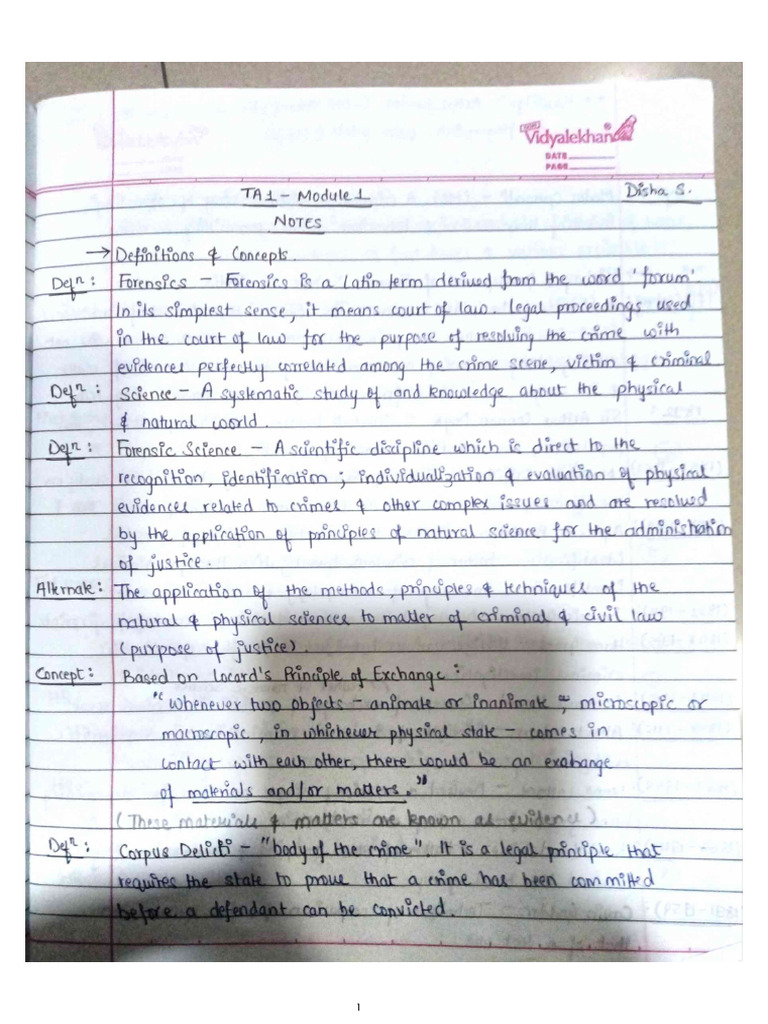 Vidyalekhan®
DATE
PAGE
TA1 - Module 1
Disha S.
NOTES
→ Definitions & Concepts.
Defn: Forensics - Forensics is a Latin term derived from the word 'forum'
In its simplest sense, it means court of law. Legal proceedings used
in the court of law for the purpose of resolving the crime with
evidences perfectly correlated among the crime scene, victim & criminal
Defn: Science - A systematic study of and knowledge about the physical
& natural world.
Defn: Forensic Science - A scientific discipline which is direct to the
recognition, identification ; individualization & evaluation of physical
evidences related to crimes & other complex issues and are resolved
by the application of principles of natural science for the administration
of justice.
Alternate: The application of the methods, principles & techniques of the
natural & physical sciences to matter of criminal & civil law
(purpose of justice).
Concept: Based on Locard's Principle of Exchange:
"Whenever two objects - animate or inanimate, microscopic or
macroscopic, in whichever physical state - comes in
contact with each other, there would be an exahange
of materials and/or matters."
(These materials & matters are known as evidence)
Defn: Corpus Delicti - "body of the crime". It is a legal principle that
requires the state to prove that a crime has been committed
before a defendant can be convicted.
1